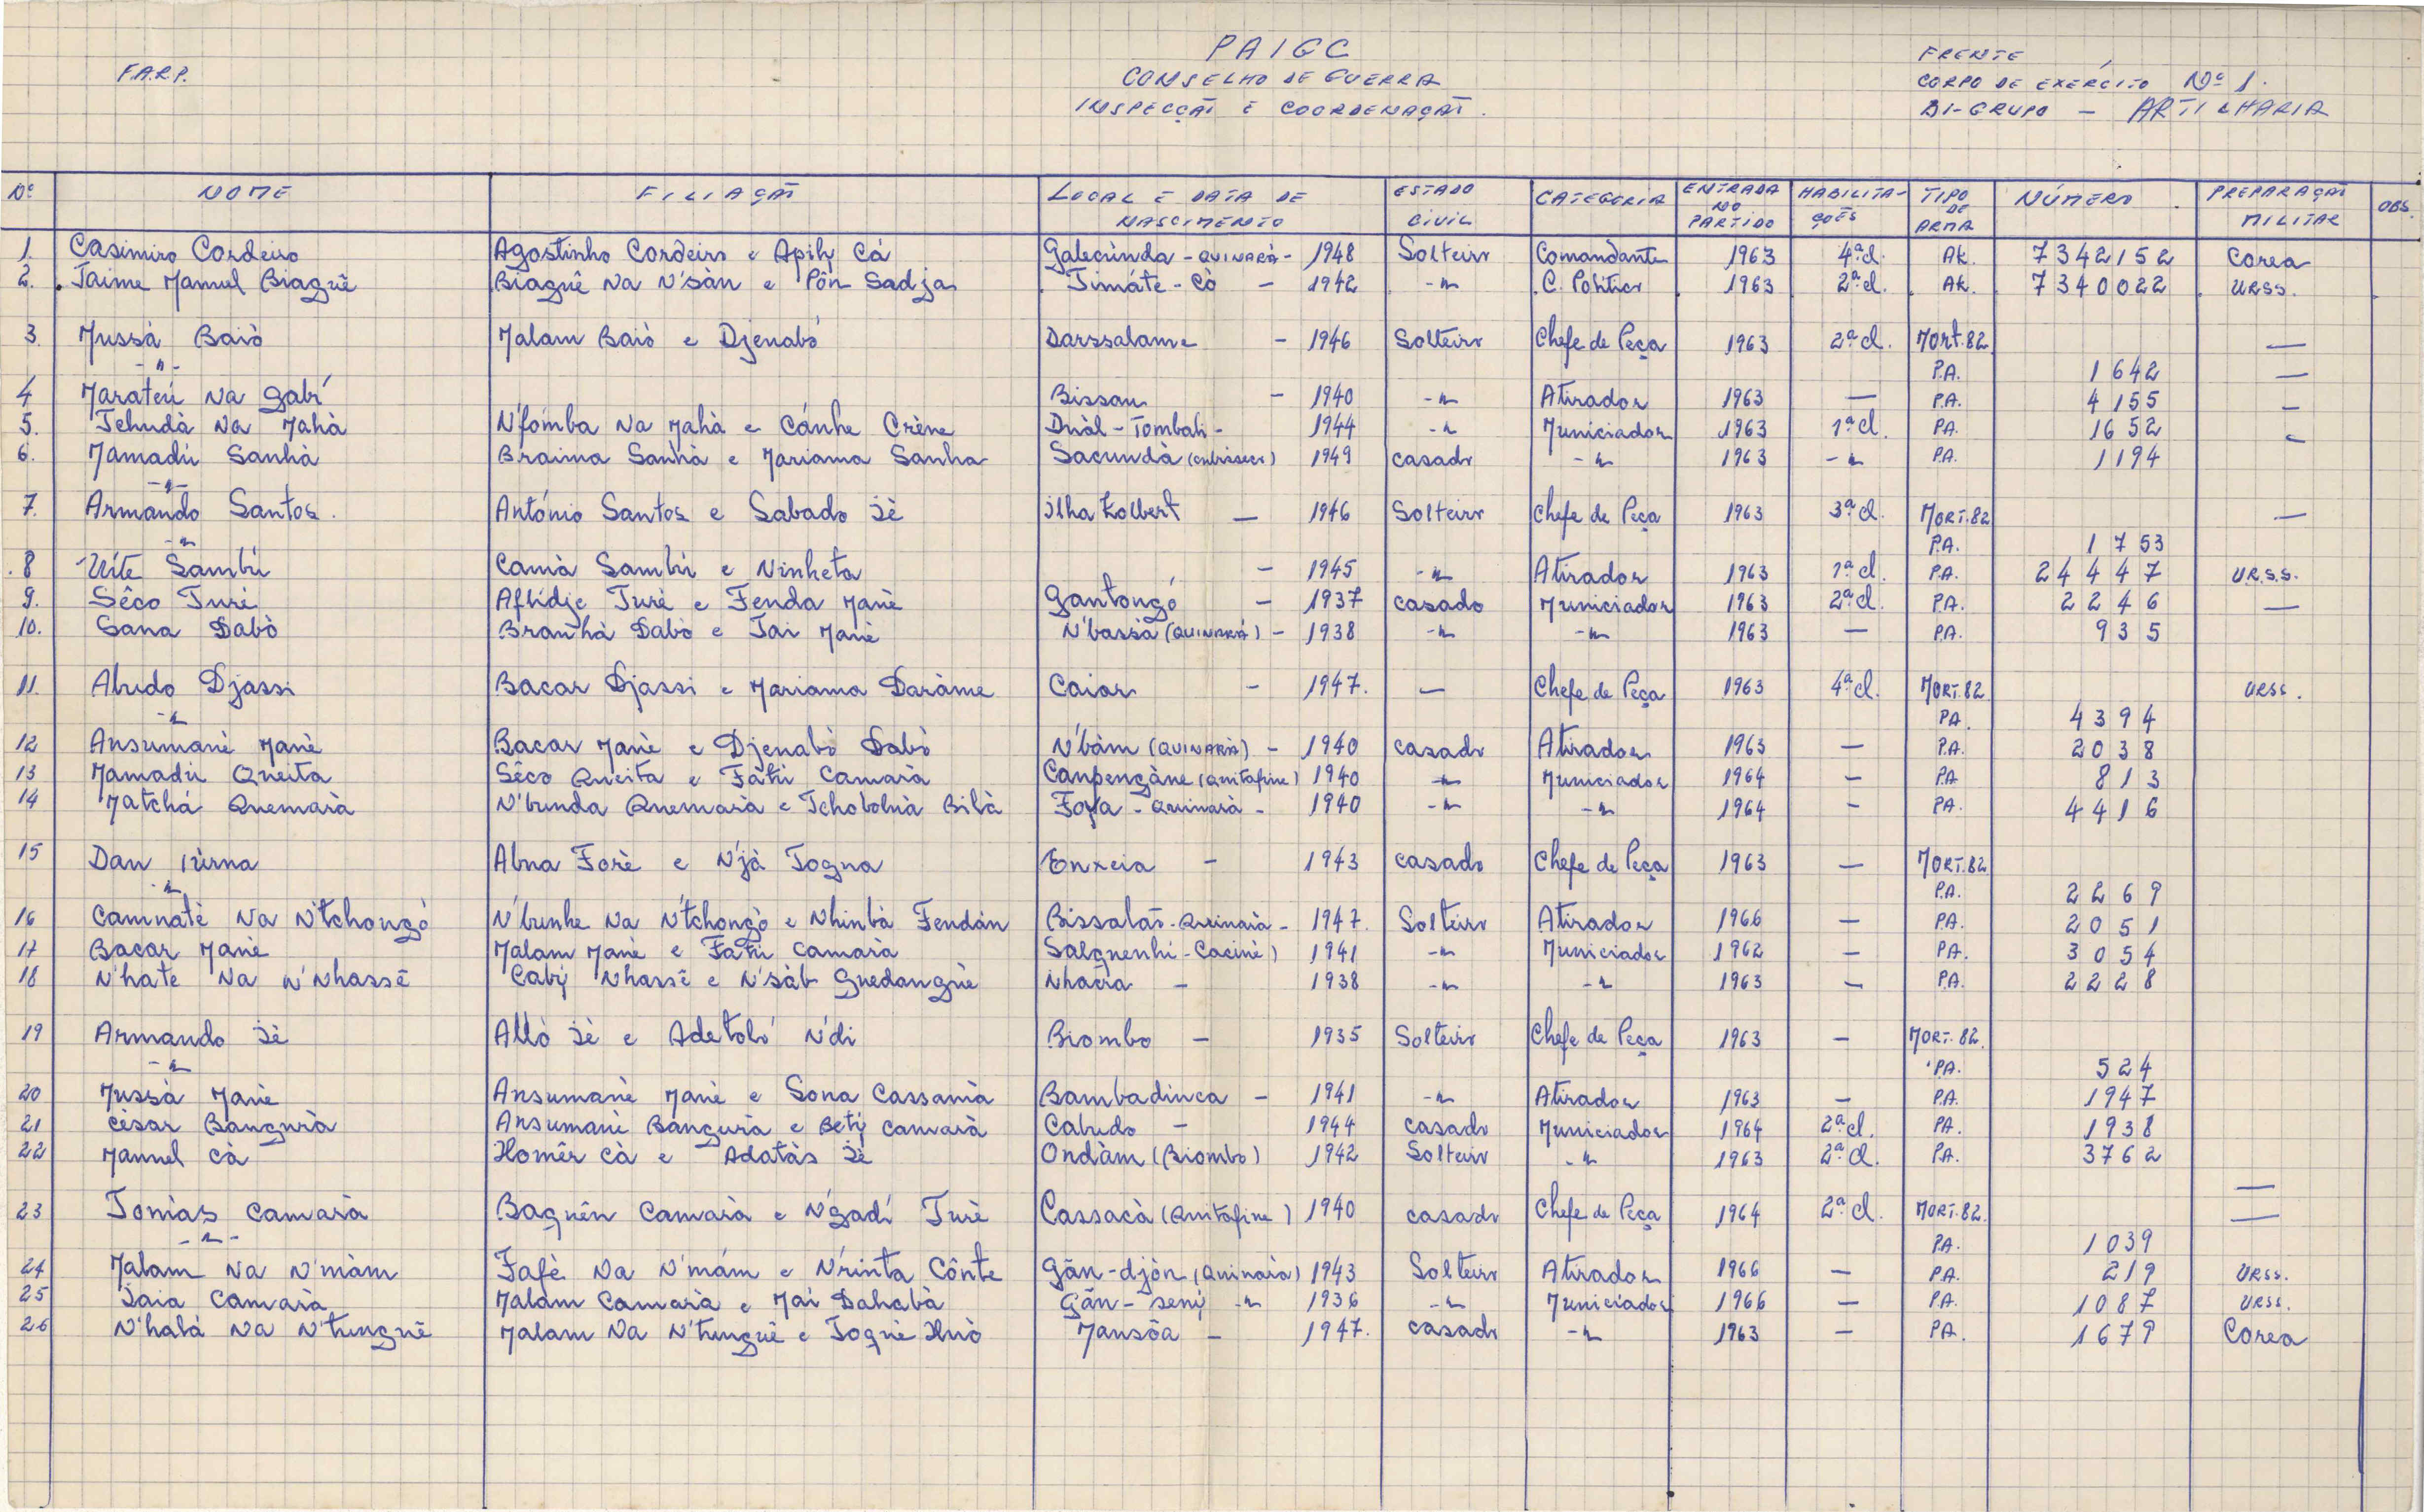 F.A.R.P.
PAIGC
CONSELHO DE GUERRA
INSPECÇÃO E COORDENAÇÃO.
FRENTE
CORPO DE EXÉRCITO Nº 1.
BI-GRUPO - ARTILHARIA
Nº NOME FILIAÇÃO LOCAL E DATA DE NASCIMENTO ESTADO CIVIL CATEGORIA ENTRADA NO PARTIDO HABILITAÇÕES TIPO DE ARMA NÚMERO PREPARAÇÃO MILITAR OBS.
1. Casimiro Cordeiro Agostinho Cordeiro e Apily Cá Galecúnda - QUINARÁ - 1948 Solteiro Comandante 1963 4ª cl. AK. 7342152 Corea
2. Jaime Manuel Biaguê Biaguê Na N'sàn e Pôn Sadja Timáte - Cò - 1942 -"- C. Político 1963 2ª cl. AK. 7340022 URSS.
3. Mussà Baiò Malam Baiò e Djenabó Darssalame - 1946 Solteiro Chefe de Peça 1963 2ª cl. Mort. 82 —
-"- P.A. 1642 —
4 Marateú Na Gabí Bissau - 1940 -"- Atirador 1963 — P.A. 4155 —
5. Tchudà Na Mahà N'fomba Na Mahà e Cánhe Crène Duàl - Tombali - 1944 -"- Municiador 1963 1ª cl. PA. 1652 —
6. Mamadú Sanhà Braima Sanhà e Mariama Sanha Sacundà 1949 casado -"- 1963 -"- P.A. 1194
-"-
7. Armando Santos. António Santos e Sabado Jè ilha Kolbert — 1946 Solteiro Chefe de Peça 1963 3ª cl. MORT. 82 —
-"- P.A. 1753
8 Uíte Sambú Camà Sambú e Ninheta - 1945 -"- Atirador 1963 1ª cl. P.A. 24447 U.R.S.S.
9. Sêco Turé Aflidje Turè e Fenda Manè Gantongó - 1937 casado Municiador 1963 2ª cl. P.A. 2246 —
10. Sana Dabò Branhà Dabò e Tai Manè N'bassà (QUINARÁ) - 1938 -"- -"- 1963 — P.A. 935
11. Abudo Djassi Bacar Djassi e Mariama Daràme Caiar - 1947. — Chefe de Peça 1963 4ª cl. MORT. 82 URSS.
-"- PA. 4394
12 Ansumanè Manè Bacar Manè e Djenabò Dabò N'bàm (QUINARÀ) - 1940 casado Atirador 1963 — P.A. 2038
13 Mamadú Queita Sêco Queita e Fàtú Camarà Canpengàne (Quitafine) 1940 -"- Municiador 1964 — PA 813
14 Matchá Quemarà N'bunda Quemarà e Tchobolnà Bilà Foya - Quinarà - 1940 -"- -"- 1964 — PA. 4416
15 Dan iùrna Abna Forè e N'jà Togna Enxeia - 1943 casado Chefe de Peça 1963 — MORT. 82
-"- P.A. 2269
16 Caminatè Na N'tchongó N'bunhe Na N'tchongò e Nhinbà Fendàn Bissalão - Quinarà - 1947. Solteiro Atirador 1966 — P.A. 2051
17 Bacar Manè Malam Manè e Fàtú Camarà Salquenhi - Cacinè) 1941 -"- Municiador 1962 — PA. 3054
18 N'hate Na N'Nhassê Cabí Nhassê e N'sàb Guedanguè Nhacra - 1938 -"- -"- 1963 — P.A. 2228
19 Armando Jè Allò Jè e Adetoló N'di Biombo - 1935 Solteiro Chefe de Peça 1963 — MORT. 82.
-"- PA. 524
20 Mussà Manè Ansumanè Manè e Sona Cassamà Bambadinca - 1941 -"- Atirador 1963 — P.A. 1947
21 Cèsar Bangurà Ansumanè Bangurà e Betý Camarà Cabudo - 1944 casado Municiador 1964 2ª cl. PA. 1938
22 Manuel Cà Homêr Cà e Adatàs Jè Ondàm (Biombo) 1942 Solteiro -"- 1963 2ª cl. P.A. 3762
—
23 Tomàs Camarà Baguên Camarà e N'gadí Turè Cassacà (Quitafine) 1940 casado Chefe de Peça 1964 2ª cl. MORT. 82. —
-"- P.A. 1039
24 Malam Na N'màm Fafè Na N'mám e N'rinta Cônte Gãn-djòn (Quinarà) 1943 Solteiro Atirador 1966 — PA. 219 URSS.
25 Saia Camarà Malam Camarà e Mai Dahabà Gãn-sený -"- 1936 -"- Municiador 1966 — PA. 1087 URSS.
26 N'halá Na N'tunguê Malam Na N'tunguê e Toguè Huò Mansôa - 1947. casado -"- 1963 — PA. 1679 Corea